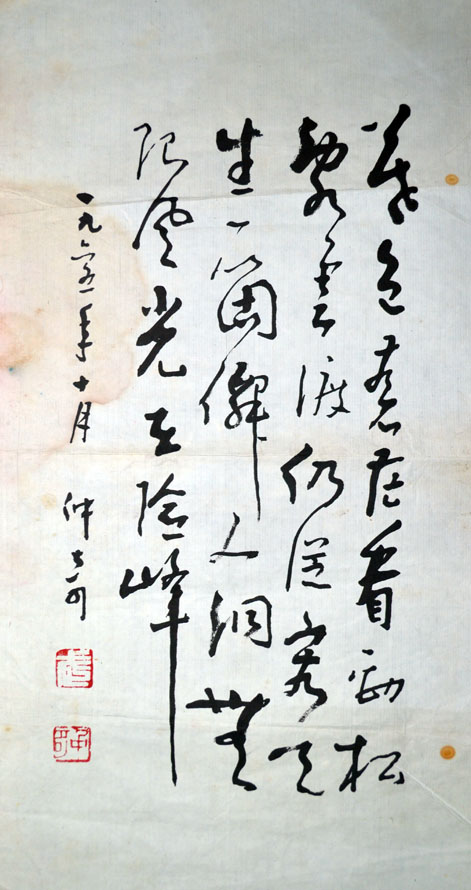 暮色苍茫看劲松
乱云渡仍从容天
生一箇仙人洞無
限风光在险峰
一九六五年十月 仲奇